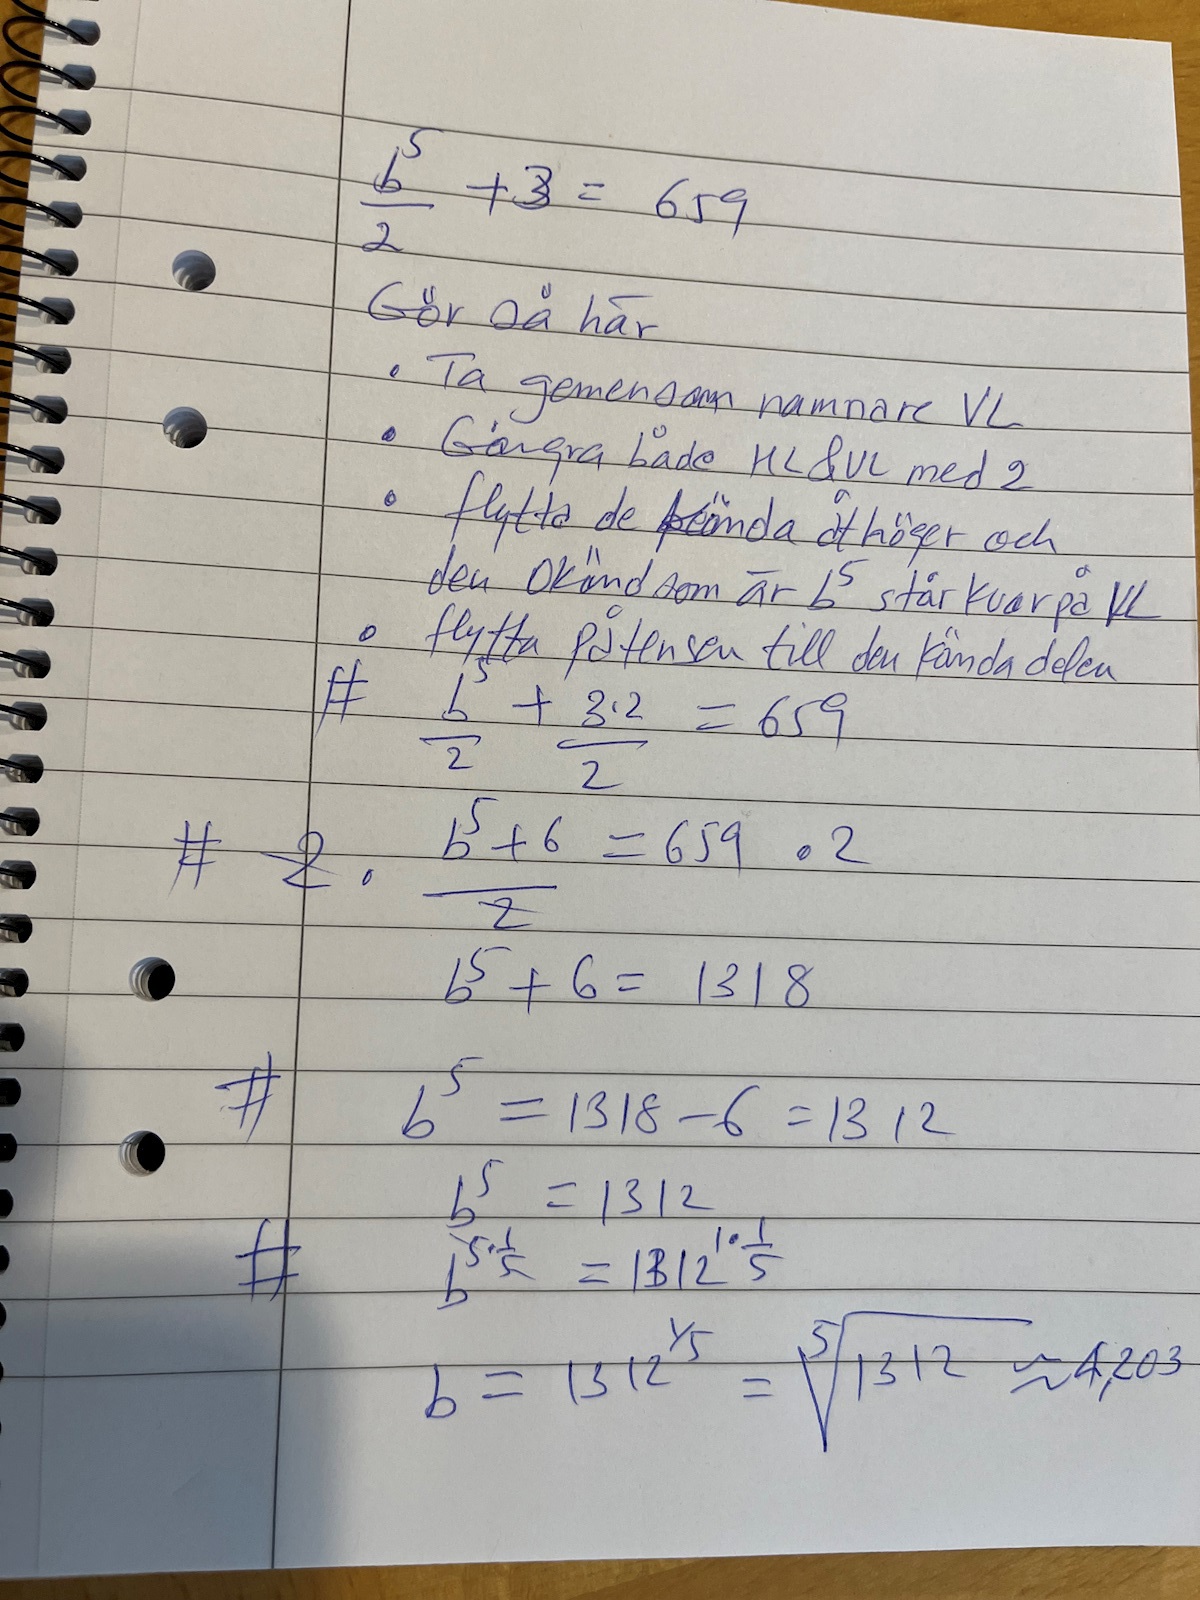 b⁵/2 + 3 = 659
Gör så här
• Ta gemensam nämnare VL
• Gångra både HL & VL med 2
• flytta de kända åt höger och
den okänd som är b⁵ står kvar på VL
• flytta påtensen till den kända delen
# b⁵/2 + 3·2/2 = 659
# 2 · (b⁵+6)/2 = 659 · 2
b⁵ + 6 = 1318
# b⁵ = 1318 – 6 = 1312
b⁵ = 1312
# b^(5·1/5) = 1312^(1·1/5)
b = 1312^(1/5) = ⁵√1312 ≈ 4,203